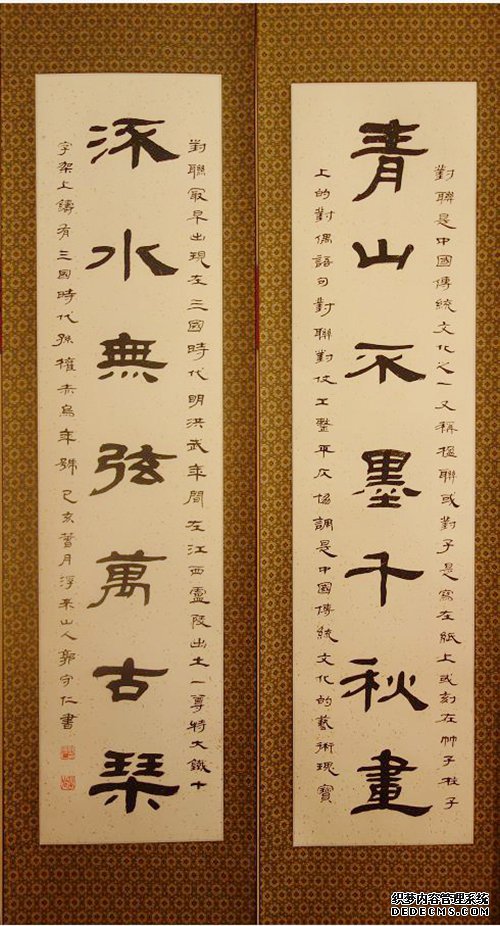 青山不墨千秋畫
對聯是中國傳統文化之一又稱楹聯或對子是寫在紙上或刻在竹子柱子
上的對偶語句對聯對仗工整平仄協調是中國傳統文化的藝術瑰寶
水無弦萬古琴
對聯㝡早出現在三國時代明洪武年間在江西靈陵出土一尊特大鐵十
字架上鑄有三國時代孫權赤烏年號 己亥 月浮来山人郭守仁書
织梦内容管理系统
DEDECMS.COM